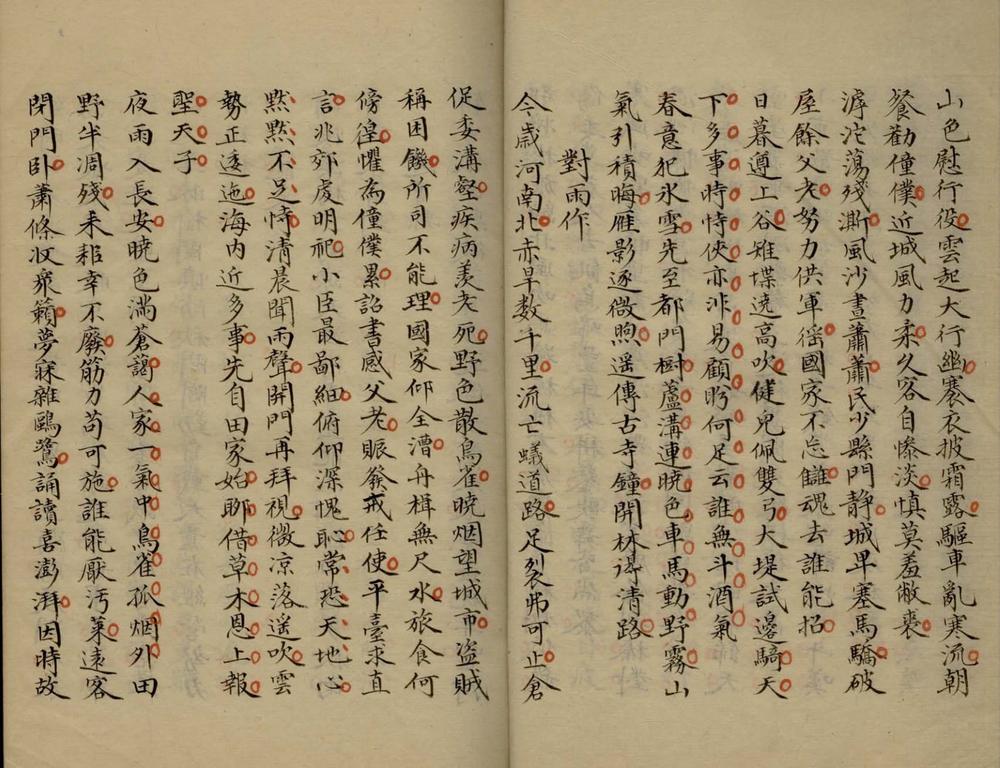 山色慰行役雲起大行幽褰衣披霜露驅車亂寒流朝
餐勸僮僕近城風力柔久客自慘淡慎莫羞敝裘
滹沱蕩殘澌風沙晝蕭蕭民少縣門静城卑塞馬驕破
屋餘父老努力供軍徭國家不忘讎魂去誰能招
日暮遵上谷雉堞遶高吹健兒佩雙弓大堤試邊騎天
下多事時恃俠亦非易顧盼何足云誰無斗酒氣
春意犯氷雪先至都門樹蘆溝連曉色車馬動野霧山
氣引積晦雁影逐微煦遥傳古寺鐘開林得清路
對雨作
今歳河南北赤旱数千里流亡蟻道路足裂弗可止倉
促委溝壑疾病羡老死野色散鳥雀曉烟望城市盗賊
稱困饑所司不能理國家仰全漕舟楫無尺水旅食何
傍徨懼為僮僕累詔書感父老賑發戒任使平臺求直
言兆郊虔明祀小臣最鄙細俯仰深愧恥常恐天地心
黙黙不足恃清晨聞雨聲開門再拜視微凉落遥吹雲
勢正逶迤海内近多事先自田家始聊借草木恩上報
聖天子
夜雨入長安曉色滿蒼藹人家一氣中鳥雀孤烟外田
野半凋殘耒耜幸不廢筋力苟可施誰能厭汚萊遠客
閉門卧蕭條收衆籟夢寐雜鷗鷺誦讀喜澎湃因時故